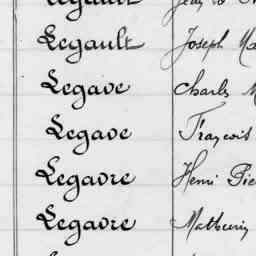 Legault Joseph
Legave Charles
Legave François
Legavre Henri
Legavre Mathurin